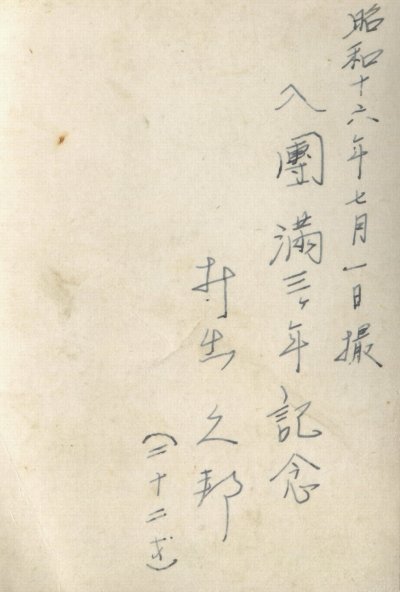 昭和十六年七月一日撮
入團満三ヶ年記念
村出久邦
(二十二才)